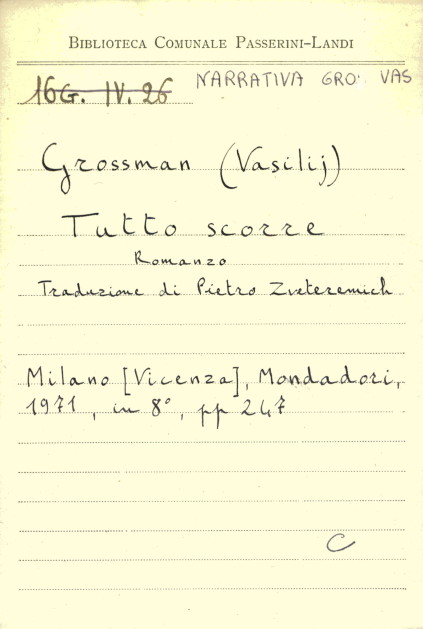 BIBLIOTECA COMUNALE PASSERINI-LANDI
16G. IV. 26 NARRATIVA GRO VAS
Grossman (Vasilij)
Tutto scorre
Romanzo
Traduzione di Pietro Zveteremich
Milano [Vicenza], Mondadori,
1971, in 8°, pp 247
C